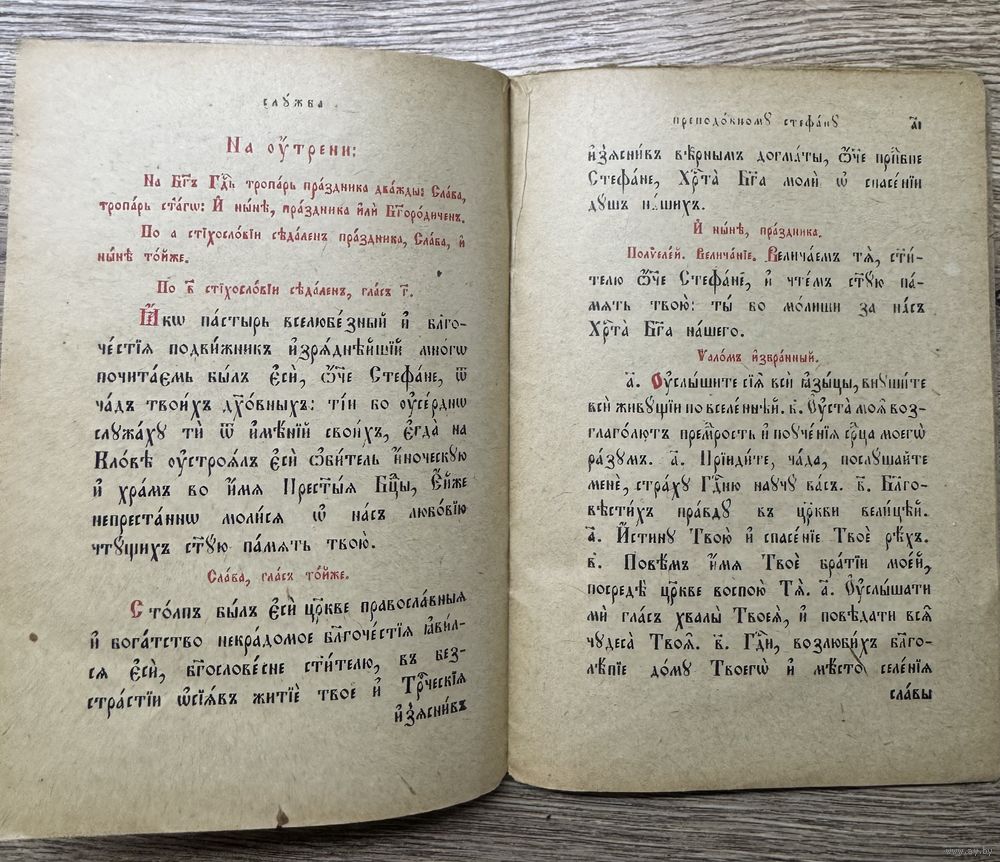 слꙋ́жба
На оу҆́трени:
На Бг҃ъ Гдⷭ҇ь тропарь пра́здника два́жды: Сла́ва,
тропарь ст҃а́гѡ: И҆ ны́нѣ, пра́здника и҆лѝ Бг҃оро́диченъ.
По а стїхосло́вїи сѣда́ленъ пра́здника, Сла́ва, и҆
ны́нѣ то́йже.
По в҃ стїхосло́вїи сѣда́ленъ, гла́съ г҃.
Ꙗ҆́кѡ па́стырь вселюбе́зный и҆ бл҃го-
че́стїѧ подви́жникъ и҆зрѧднѣ́йшїй мно́гѡ
почита́емь бы́лъ є҆сѝ, ѻ҆́ч҃е Стефа́не, ѿ
ча́дъ твои́хъ дх҃о́вныхъ: ті́и бо оу҆се́рднѡ
слꙋжа́хꙋ тѝ ѿ и҆мѣ́нїй свои́хъ, є҆гда̀ на
Кло́вѣ оу҆строѧ́лъ є҆сѝ ѻ҆би́тель и҆́ноческꙋю
и҆ хра́мъ во и҆́мѧ Прест҃ы́ѧ Бц҃ы, Є҆́йже
непреста́ннѡ моли́сѧ ѡ҆ на́съ любо́вїю
чтꙋ́щихъ ст҃ꙋ́ю па́мѧть твою̀.
Сла́ва, гла́съ то́йже.
Сто́лпъ бы́лъ є҆сѝ цр҃кве правосла́вныѧ
и҆ бога́тство некра́домое бл҃гоче́стїѧ ꙗ҆ви́л-
сѧ є҆сѝ, бг҃ослове́сне ст҃и́телю, въ без-
стра́стїи ѡ҆сїѧ́въ житїѐ твоѐ и҆ Трⷪ҇ческїѧ
и҆з̾ѧсни́въ
преподо́бномꙋ стефа́нꙋ
а҃і
и҆з̾ѧсни́въ вѣ̑рнымъ дога́маты, ѻ҆́ч҃е прпⷣбне
Стефа́не, Хрⷭ҇та̀ Бг҃а молѝ ѡ҆ спасе́нїи
дꙋ́шъ на́шихъ.
И҆ ны́нѣ, пра́здника.
Полѵеле́й. Велича́нїе. Велича́емъ тѧ̀, ст҃и́-
телю ѻ҆́ч҃е Стефа́не, и҆ чте́мъ ст҃ꙋ́ю па́-
мѧть твою̀: ты́ бо мо́лиши за на́съ
Хрⷭ҇та̀ Бг҃а на́шего.
Ѱало́мъ и҆збра́нный.
а҃. Оу҆слы́шите сїѧ̑ всѝ ꙗ҆зы́цы, внꙋши́те
всѝ живꙋ́щїи по вселе́ннѣй. в҃. Оу҆ста̀ моѧ̑ воз-
глаго́лютъ премⷣрость и҆ поуче́нїѧ срⷣца моегѡ̀
ра́зꙋмъ. а҃. Прїиди́те, ча́да, послꙋ́шайте
менѐ, стра́хꙋ Гдⷭ҇ню наꙋчꙋ̀ ва́съ. в҃. Бл҃го-
вѣсти́хъ пра́вдꙋ въ цр҃кви вели́цѣй.
а҃. И҆́стинꙋ Твою̀ и҆ спасе́нїе Твоѐ рѣ́хъ.
в҃. Повѣ́мъ и҆́мѧ Твоѐ бра́тїи мое́й,
посредѣ̀ цр҃кве воспою̀ Тѧ̀. а҃. Оу҆слы́шати
мѝ гла́съ хвалы̀ Твоеѧ̀, и҆ повѣ́дати всѧ̑
чꙋдеса̀ Твоѧ̑. в҃. Гдⷭ҇и, возлюби́хъ бл҃го-
лѣ́пїе до́мꙋ Твоегѡ̀ и҆ мѣ́сто селе́нїѧ
сла́вы
www.ay.by